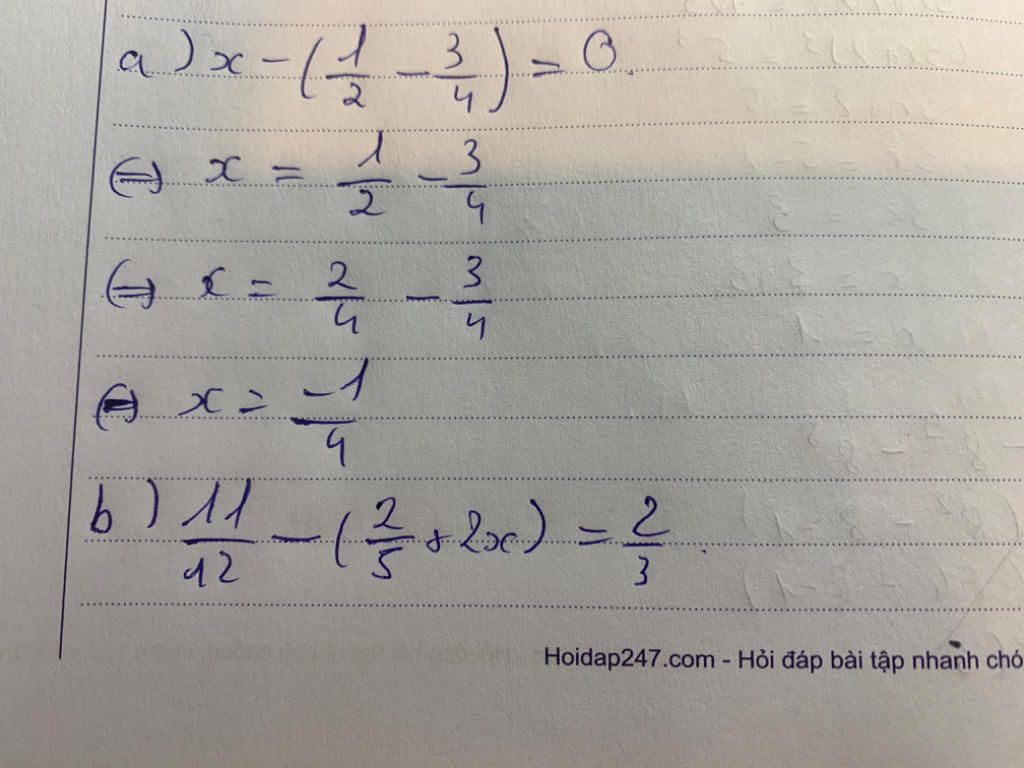 a) x - (1/2 - 3/4) = 0.
⇔ x = 1/2 - 3/4
⇔ x = 2/4 - 3/4
⇔ x = -1/4
b) 11/12 - (2/5 + 2x) = 2/3.
Hoidap247.com - Hỏi đáp bài tập nhanh chó